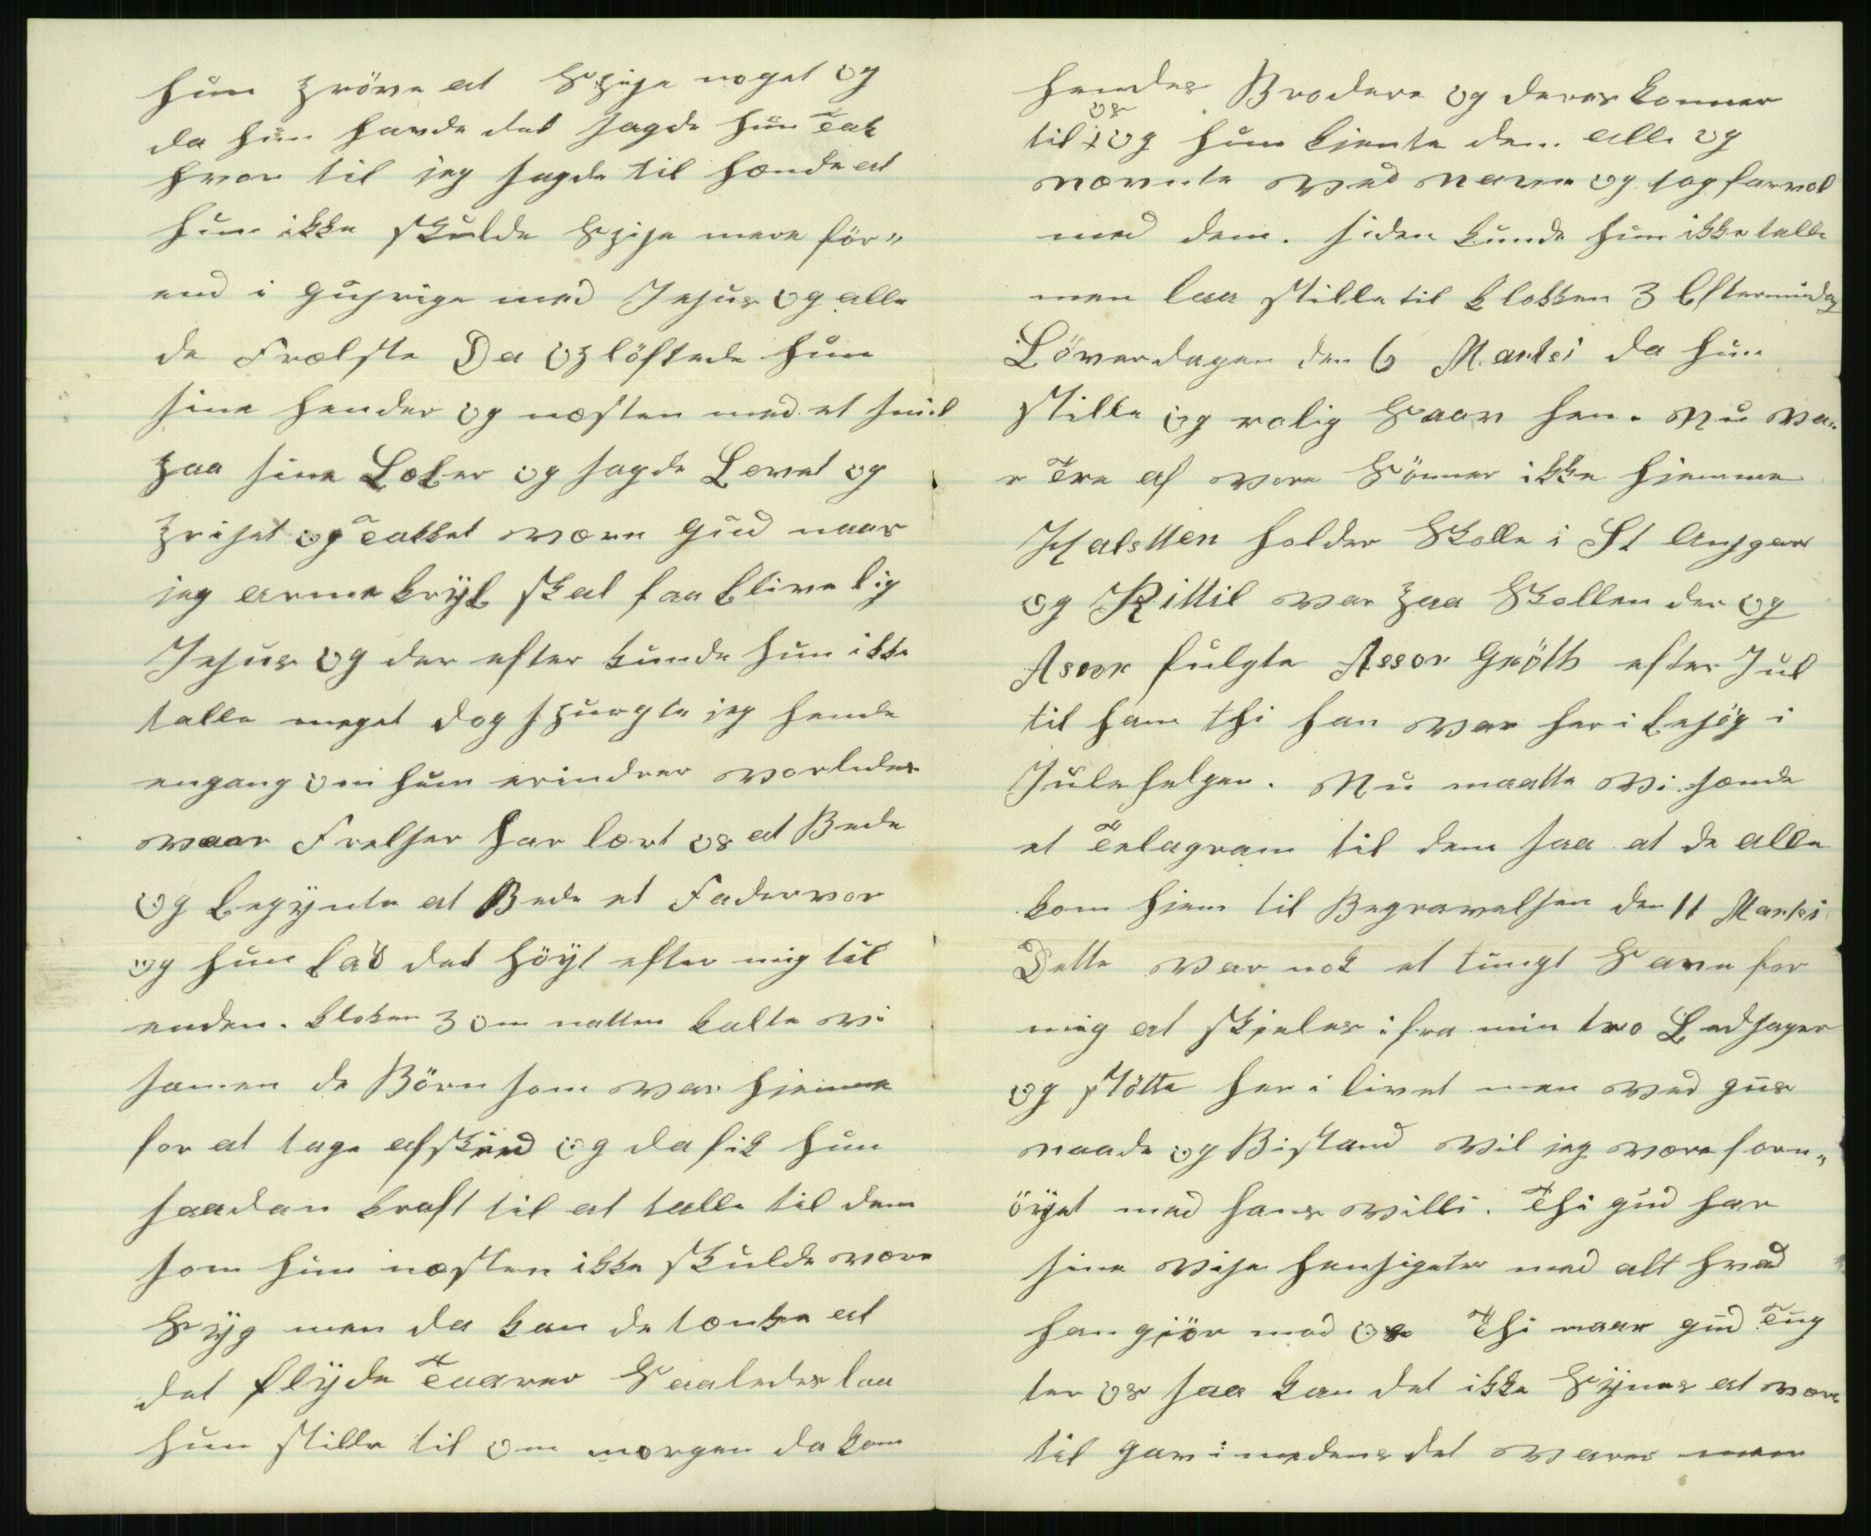 hun pröve at Spise noget og
da hun havde det sagde hun Tak
hvor til jeg sagde til hænde at
hun ikke skulde Spise mere för„
end i gusrige med Jesus og alle
de Frælste Da oplöftede hun
sine hender og næsten med et smil
paa sine Læber og sagde Lovet og
priset og Takket være Gud naar
jeg arme kryb skal faa blive lig
Jesus og der efter kunde hun ikke
talle meget dog spurgte jeg hende
engang om hun erindrer vorledes
vaar Frelser har lært os at Bede
og begynte at Bede et Fadervor
og hun bad det höyt efter mig til
enden. kloken 3 om natten kalte vi
samen de Börn som var hjemme
for at tage afsked og da fik hun
saadan kraft til at talle til dem
som hun næsten ikke skulde være
Syg men da kan de tænke at
det flyde Taarer Saaledes laa
hun stille til om morgen da kom
hendes Brodere og deres konner
til os og hun kjente dem alle og
nævnte ved navn og tog farvel
med dem. siden kunde hun ikke talle
men laa stille til klokken 3 Eftermidag
Löverdagen den 6 Martsi da hun
stille og rolig Saav hen. Nu va„
r Tre af vore Sönner ikke hjemme
Halsteen holder Skolle i St Ansgar
og Kittil var paa Skollen der og
Assor fulgte Assor Gröth efter Jul
til ham thi han var her i besög i
Julehelgen. Nu maatte vi sænde
et Telagram til dem saa at de alle
kom hjem til Begravelsen den 11 Martsi
Dette var nok et tungt Savn for
mig at skjeles ifra min tro Ledsager
og stötte her i livet men ved gus
naade og Bistand vil jeg være forn„
öyet med hans villi. Thi gud har
sine vise hensigeter med alt hvad
han gjör mod os Thi naar gud Tug
ter os saa kan det ikke Synes at være
til gavn imedens det varer men